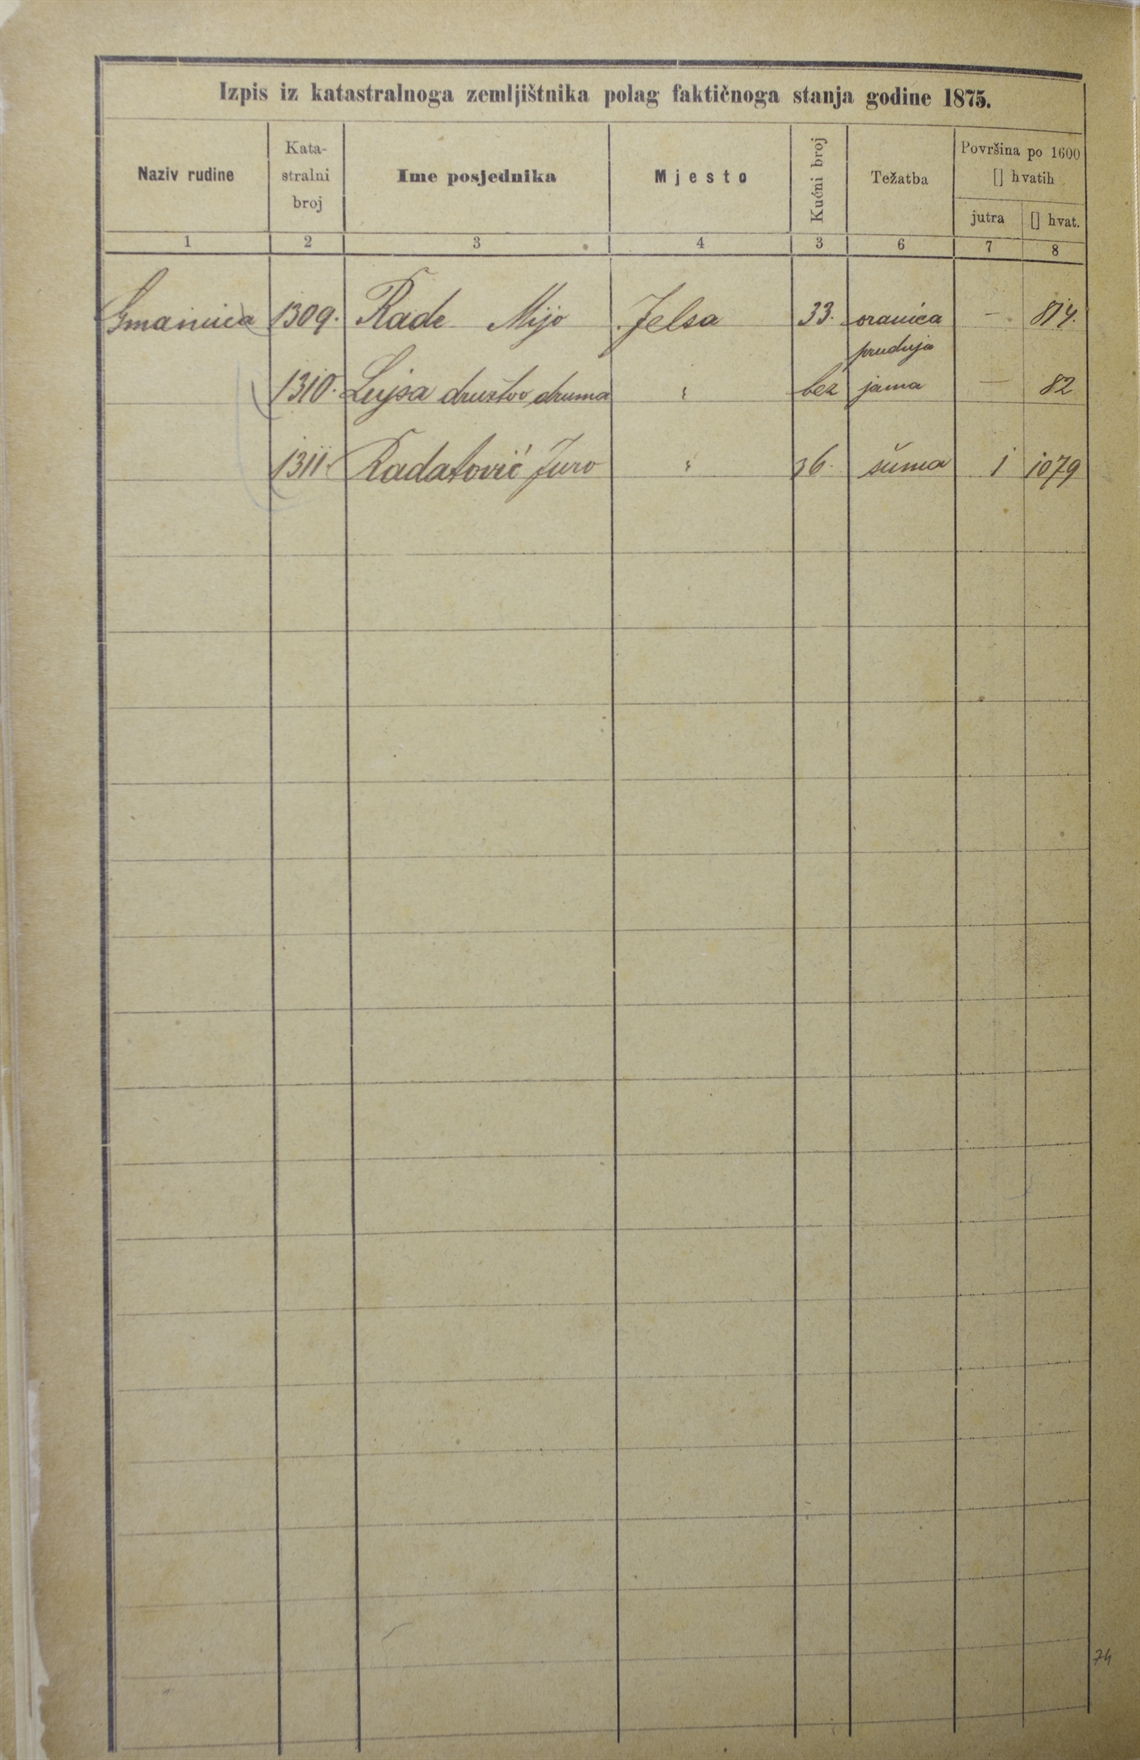 Izpis iz katastralnoga zemljištnika polag faktičnoga stanja godine 1875.
Naziv rudine
Kata-
stralni
broj
Ime posjednika
Mjesto
Kućni broj
Težatba
Površina po 1600
[] hvatih
jutra
[] hvat.
1 2 3 4 3 6 7 8
1309. Rade Mijo Jelsa 33. oranica — 814.
1310. Lujsa družtvo druma " bez jama — 82
1311. Radatović Juro " 36. šuma 1 1079
74